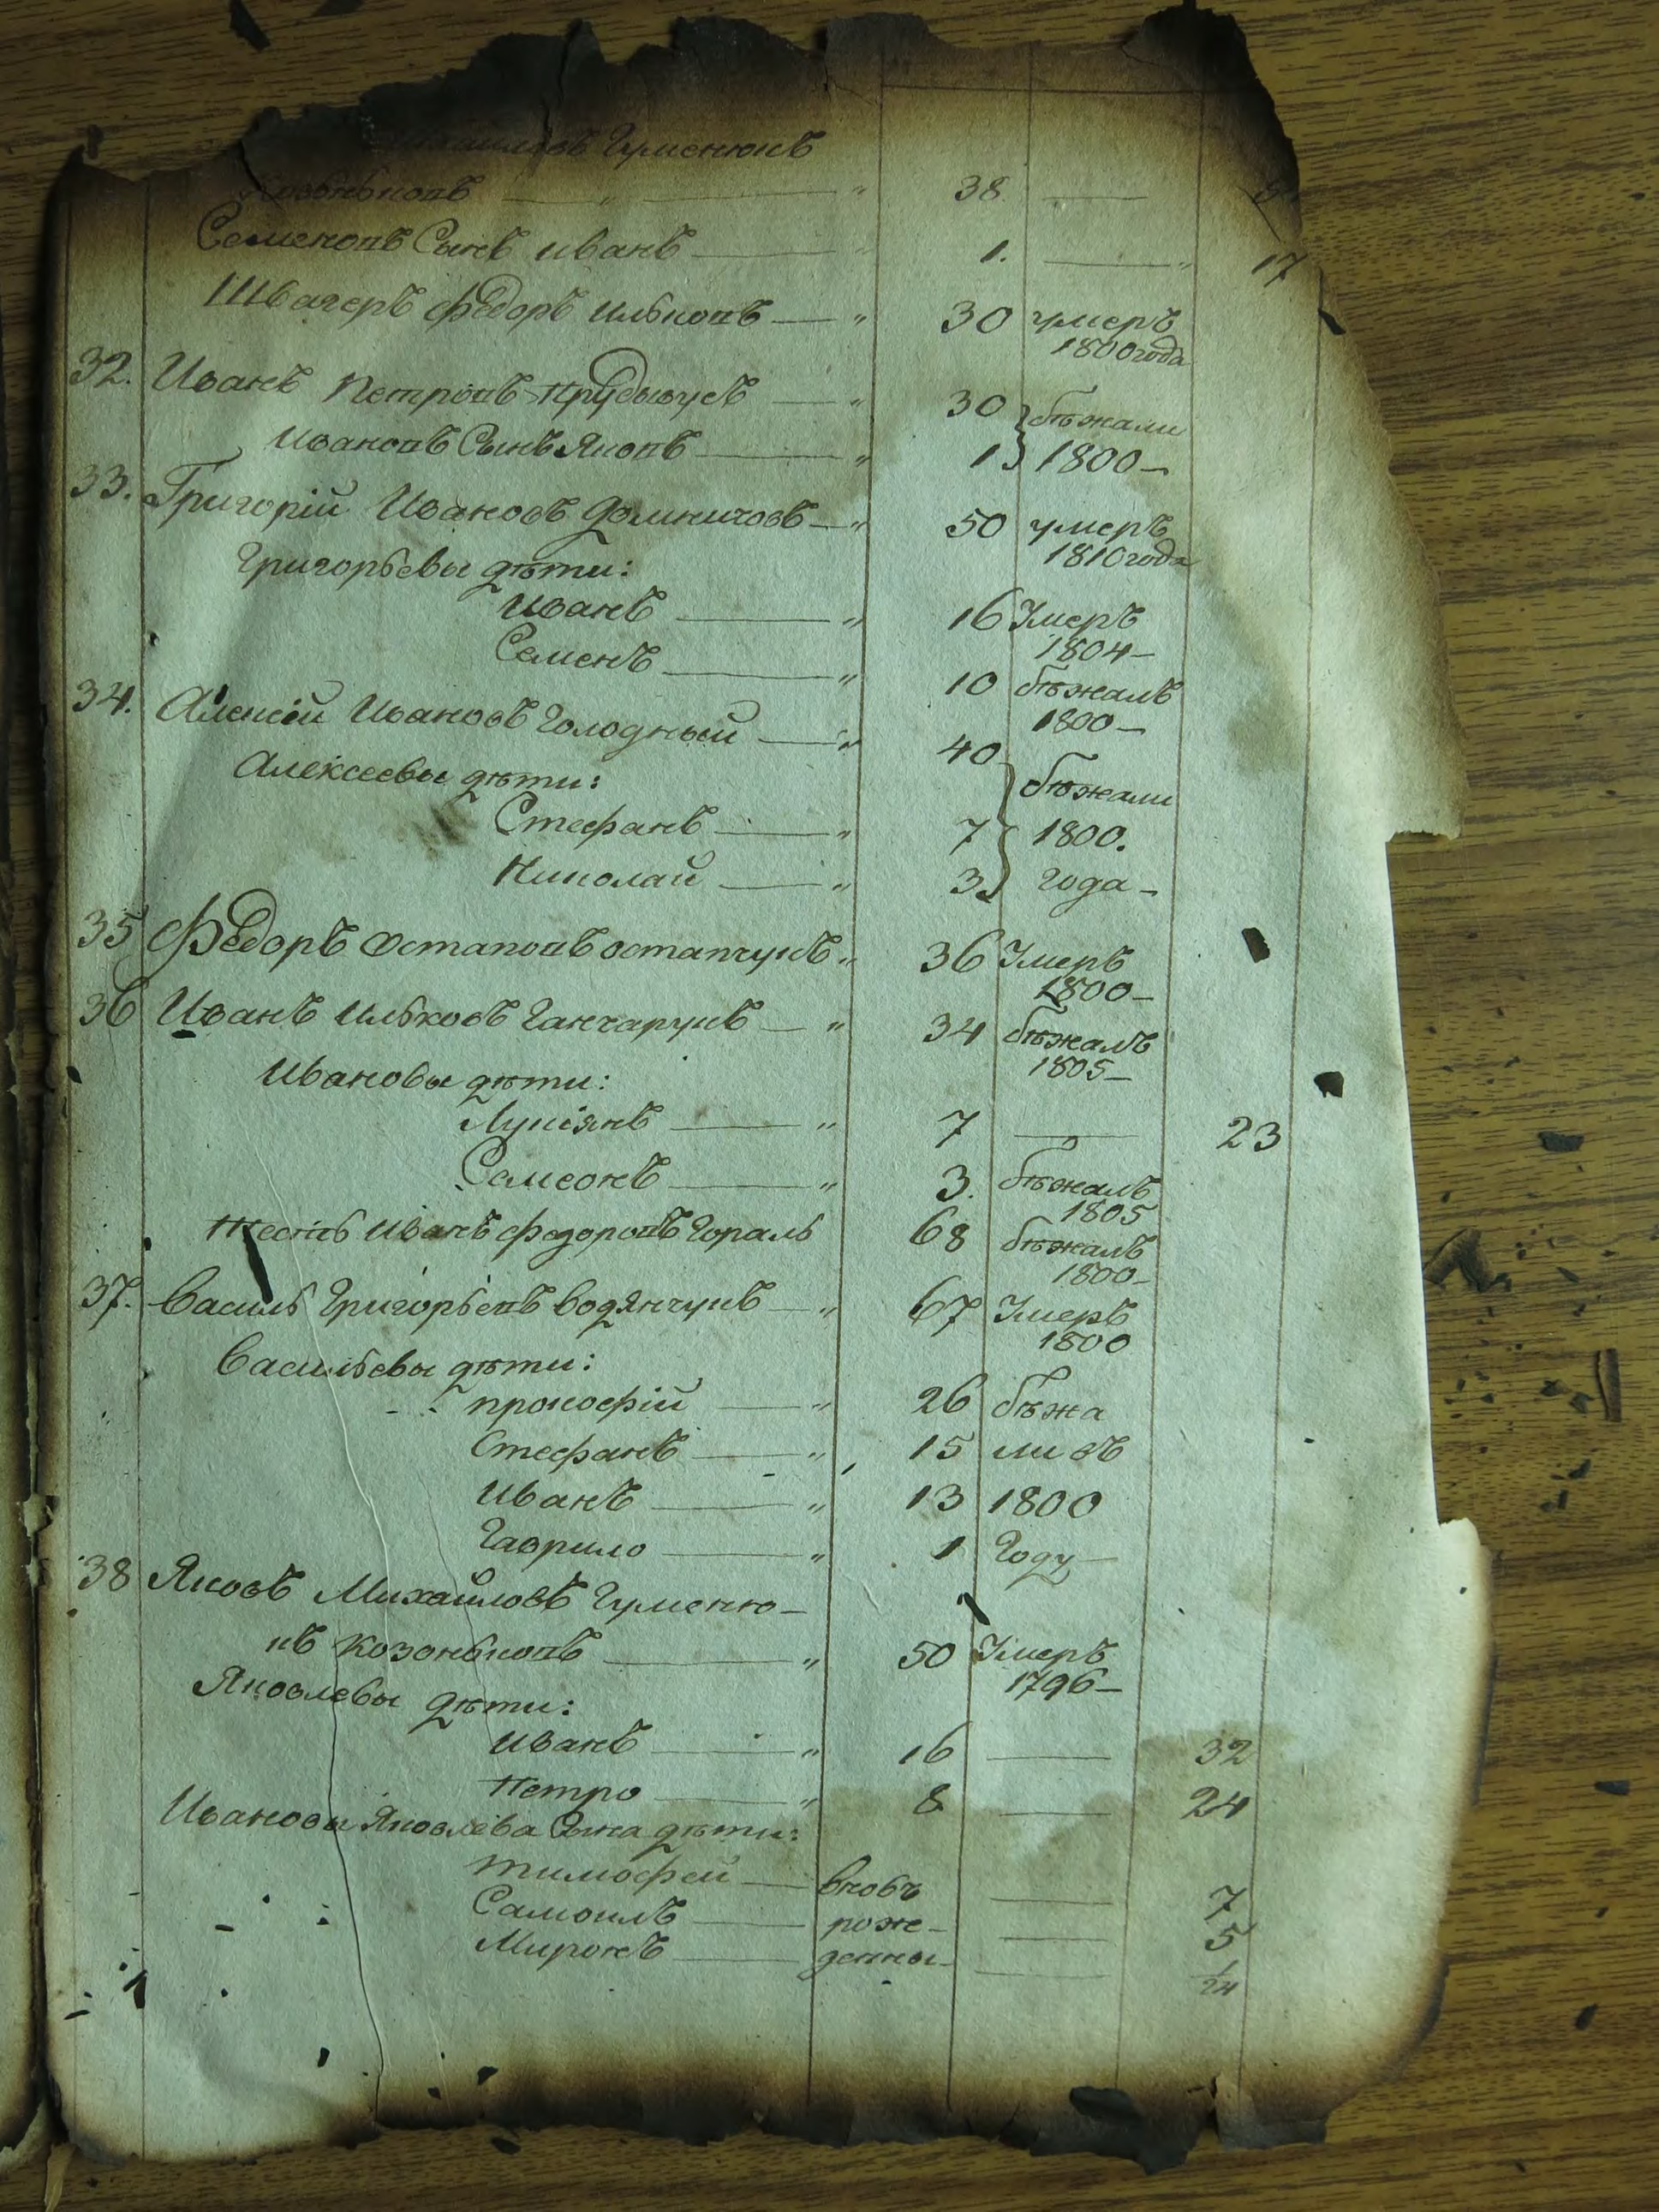 Гуменюкъ
38 —
Семеновъ Сынъ Иванъ — " 1. — " 17
Швагеръ Федоръ Ильковъ — " 30 умеръ
1800 года
32. Иванъ Петровъ Прудывусъ — " 30 бѣжали
Ивановъ Сынъ Яковъ — " 1 1800 –
33. Григорій Ивановъ Домничовъ — " 50 умеръ
1810 года
Григорьевы дѣти:
Иванъ — " 16 Умеръ
1804 –
Семенъ — " 10 бѣжалъ
1800 –
34. Алексѣй Ивановъ Голодный — " 40
Алексеевы дѣти: бѣжали
Стефанъ — " 7 1800.
Николай — " 3 года –
35 Федоръ Остаповъ остапчукъ " 36 Умеръ
1800 –
36 Иванъ Ильковъ Ганчарукъ — " 34 бѣжалъ
1805 –
Ивановы дѣти:
Лукіянъ — " 7 — 23
Семеонъ — " 3. бѣжалъ
1805
Тесть Иванъ Федоровъ Гораль 68 бѣжалъ
1800 –
37. Василь Григорьевъ Водянчукъ — " 67 Умеръ
1800
Васильевы дѣти:
прокофій — " 26 бѣжа
Стефанъ — " 15 ли въ
Иванъ — " 13 1800
Гаврило — " 1 Году –
38 Яковъ Михайловъ Гуменю–
къ козоньковъ — " 50 Умеръ
1796 –
Яковлевы дѣти:
Иванъ — " 16 — 32
Петро — " 8 — 24
Ивановы Яковлева Сына дѣти:
тимофей — вновъ — 7
Самоилъ — рож– — 5
Миронъ — денны — 1/24